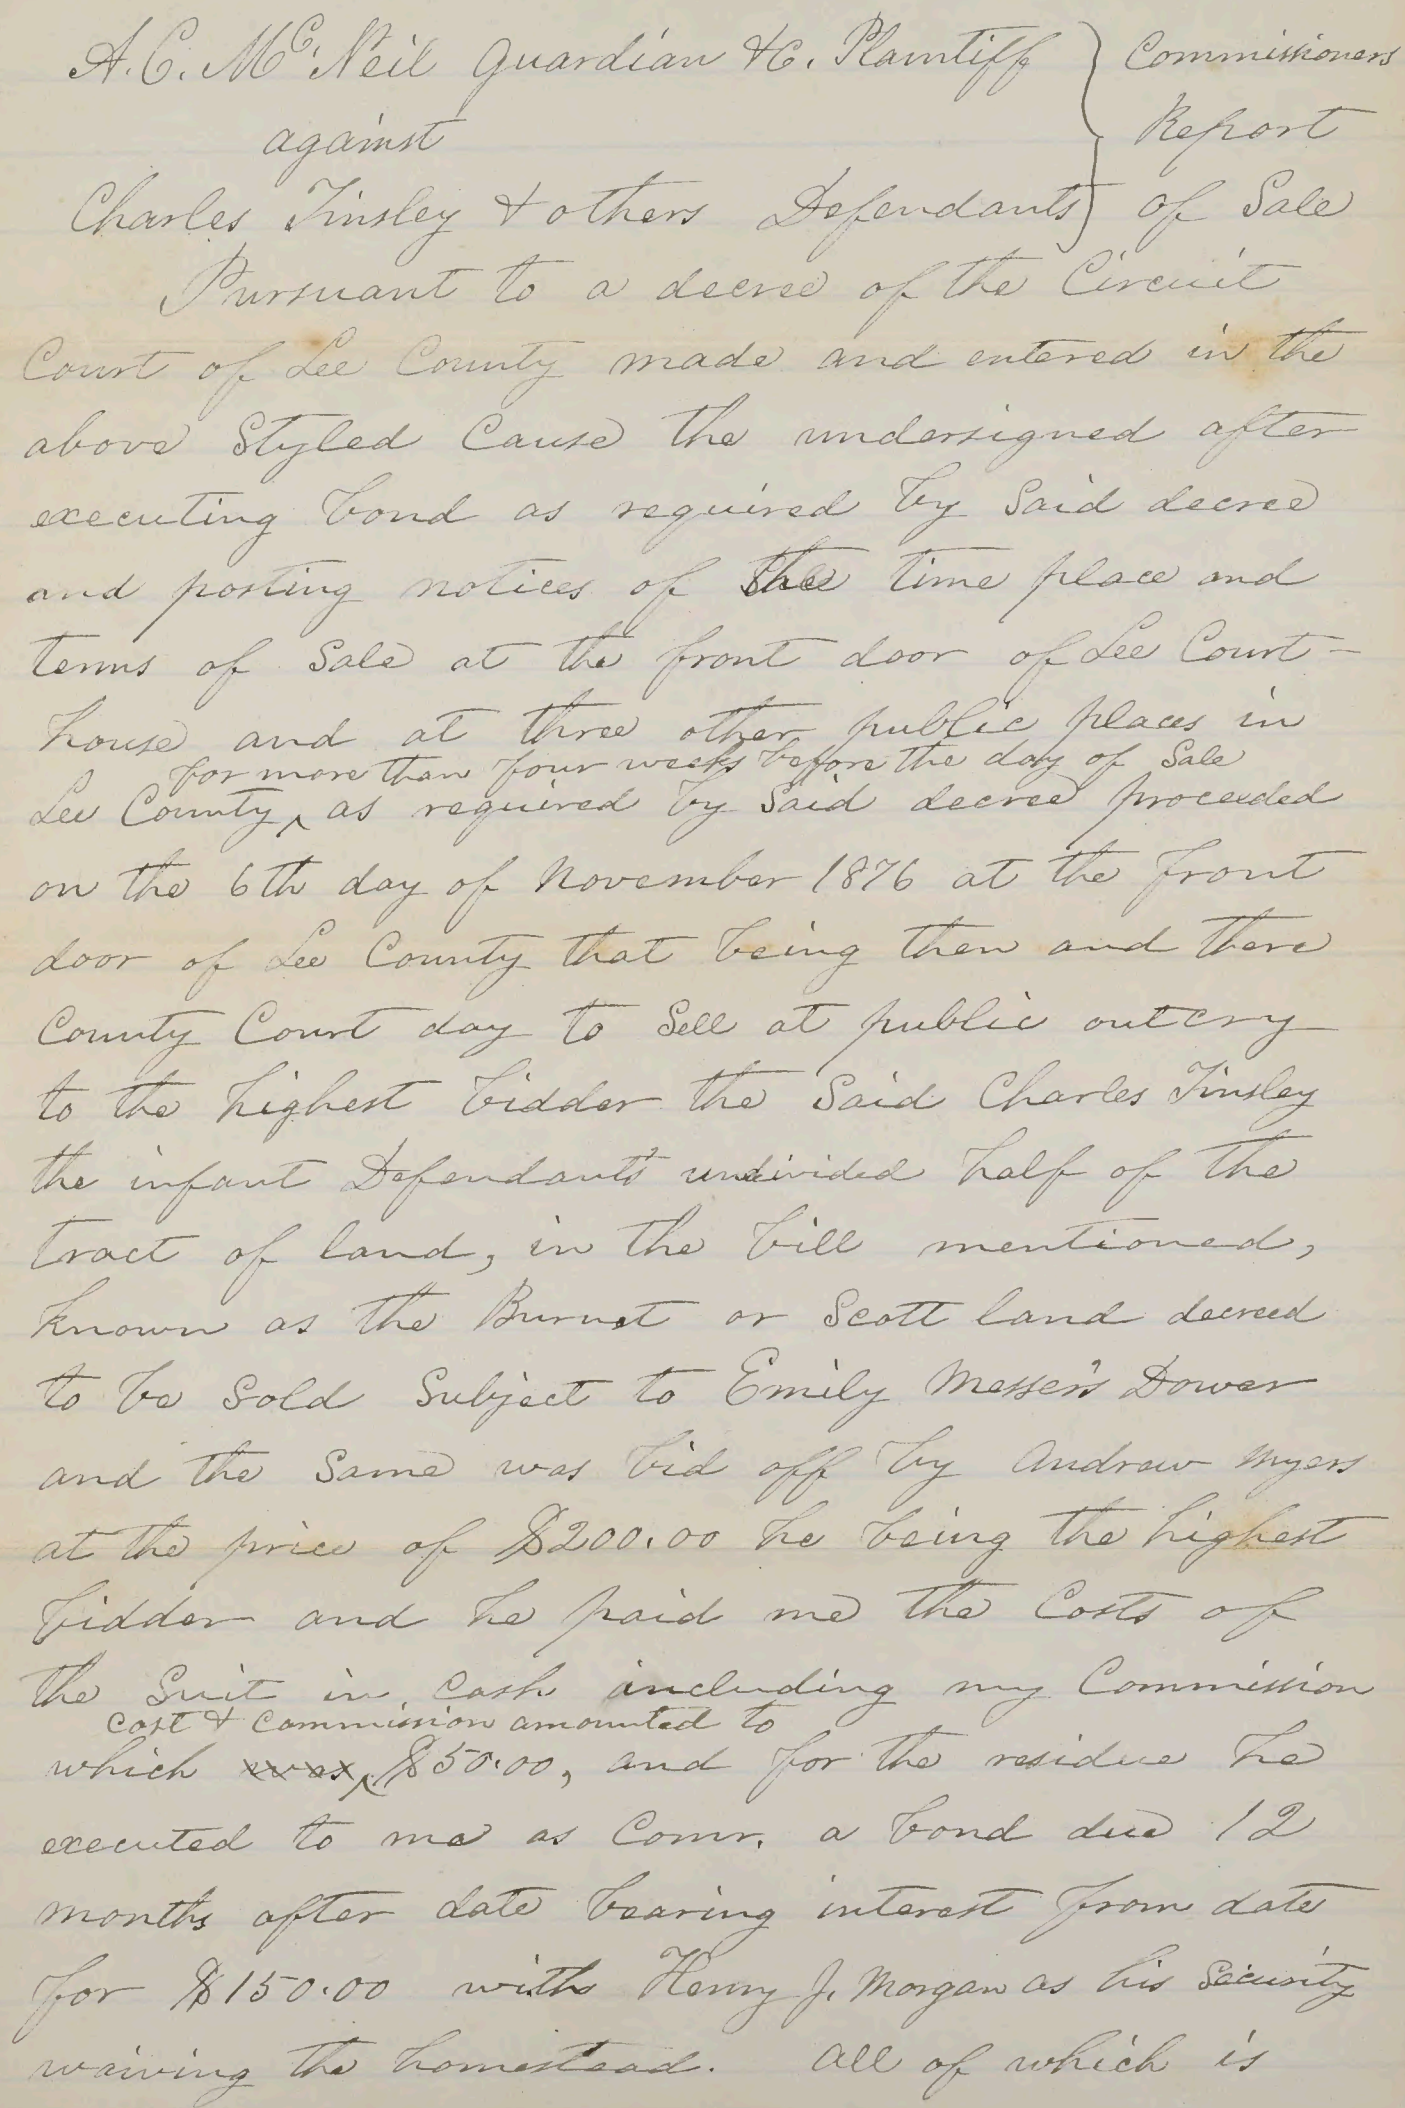 A. C. McNeil Guardian &C. Plaintiff } Commissioners
against } Report
Charles Tinsley & others Defendants } of Sale
Pursuant to a decree of the Circuit
Court of Lee County made and entered in the
above Styled Cause the undersigned after
executing bond as required by Said decree
and posting notices of the time place and
terms of Sale at the front door of Lee Court-
house and at three other public places in
for more than four weeks before the day of Sale
Lee County ^ as required by Said decree proceeded
on the 6th day of November 1876 at the front
door of Lee County that being then and there
County Court day to Sell at public outcry
to the highest bidder the Said Charles Tinsley
the infant Defendant's undivided half of the
tract of land, in the bill mentioned,
known as the Burnet or Scott land decreed
to be Sold Subject to Emily Messer's Dower
and the Same was bid off by Andrew Myers
at the price of $200.00 he being the highest
bidder and he paid me the Costs of
the Suit in cash including my Commission
cost & commission amounted to
which was ^ $50.00, and for the residue he
executed to me as Comr. a bond due 12
months after date bearing interest from date
for $150.00 with Henry J. Morgan as his Security
waiving the homestead. All of which is